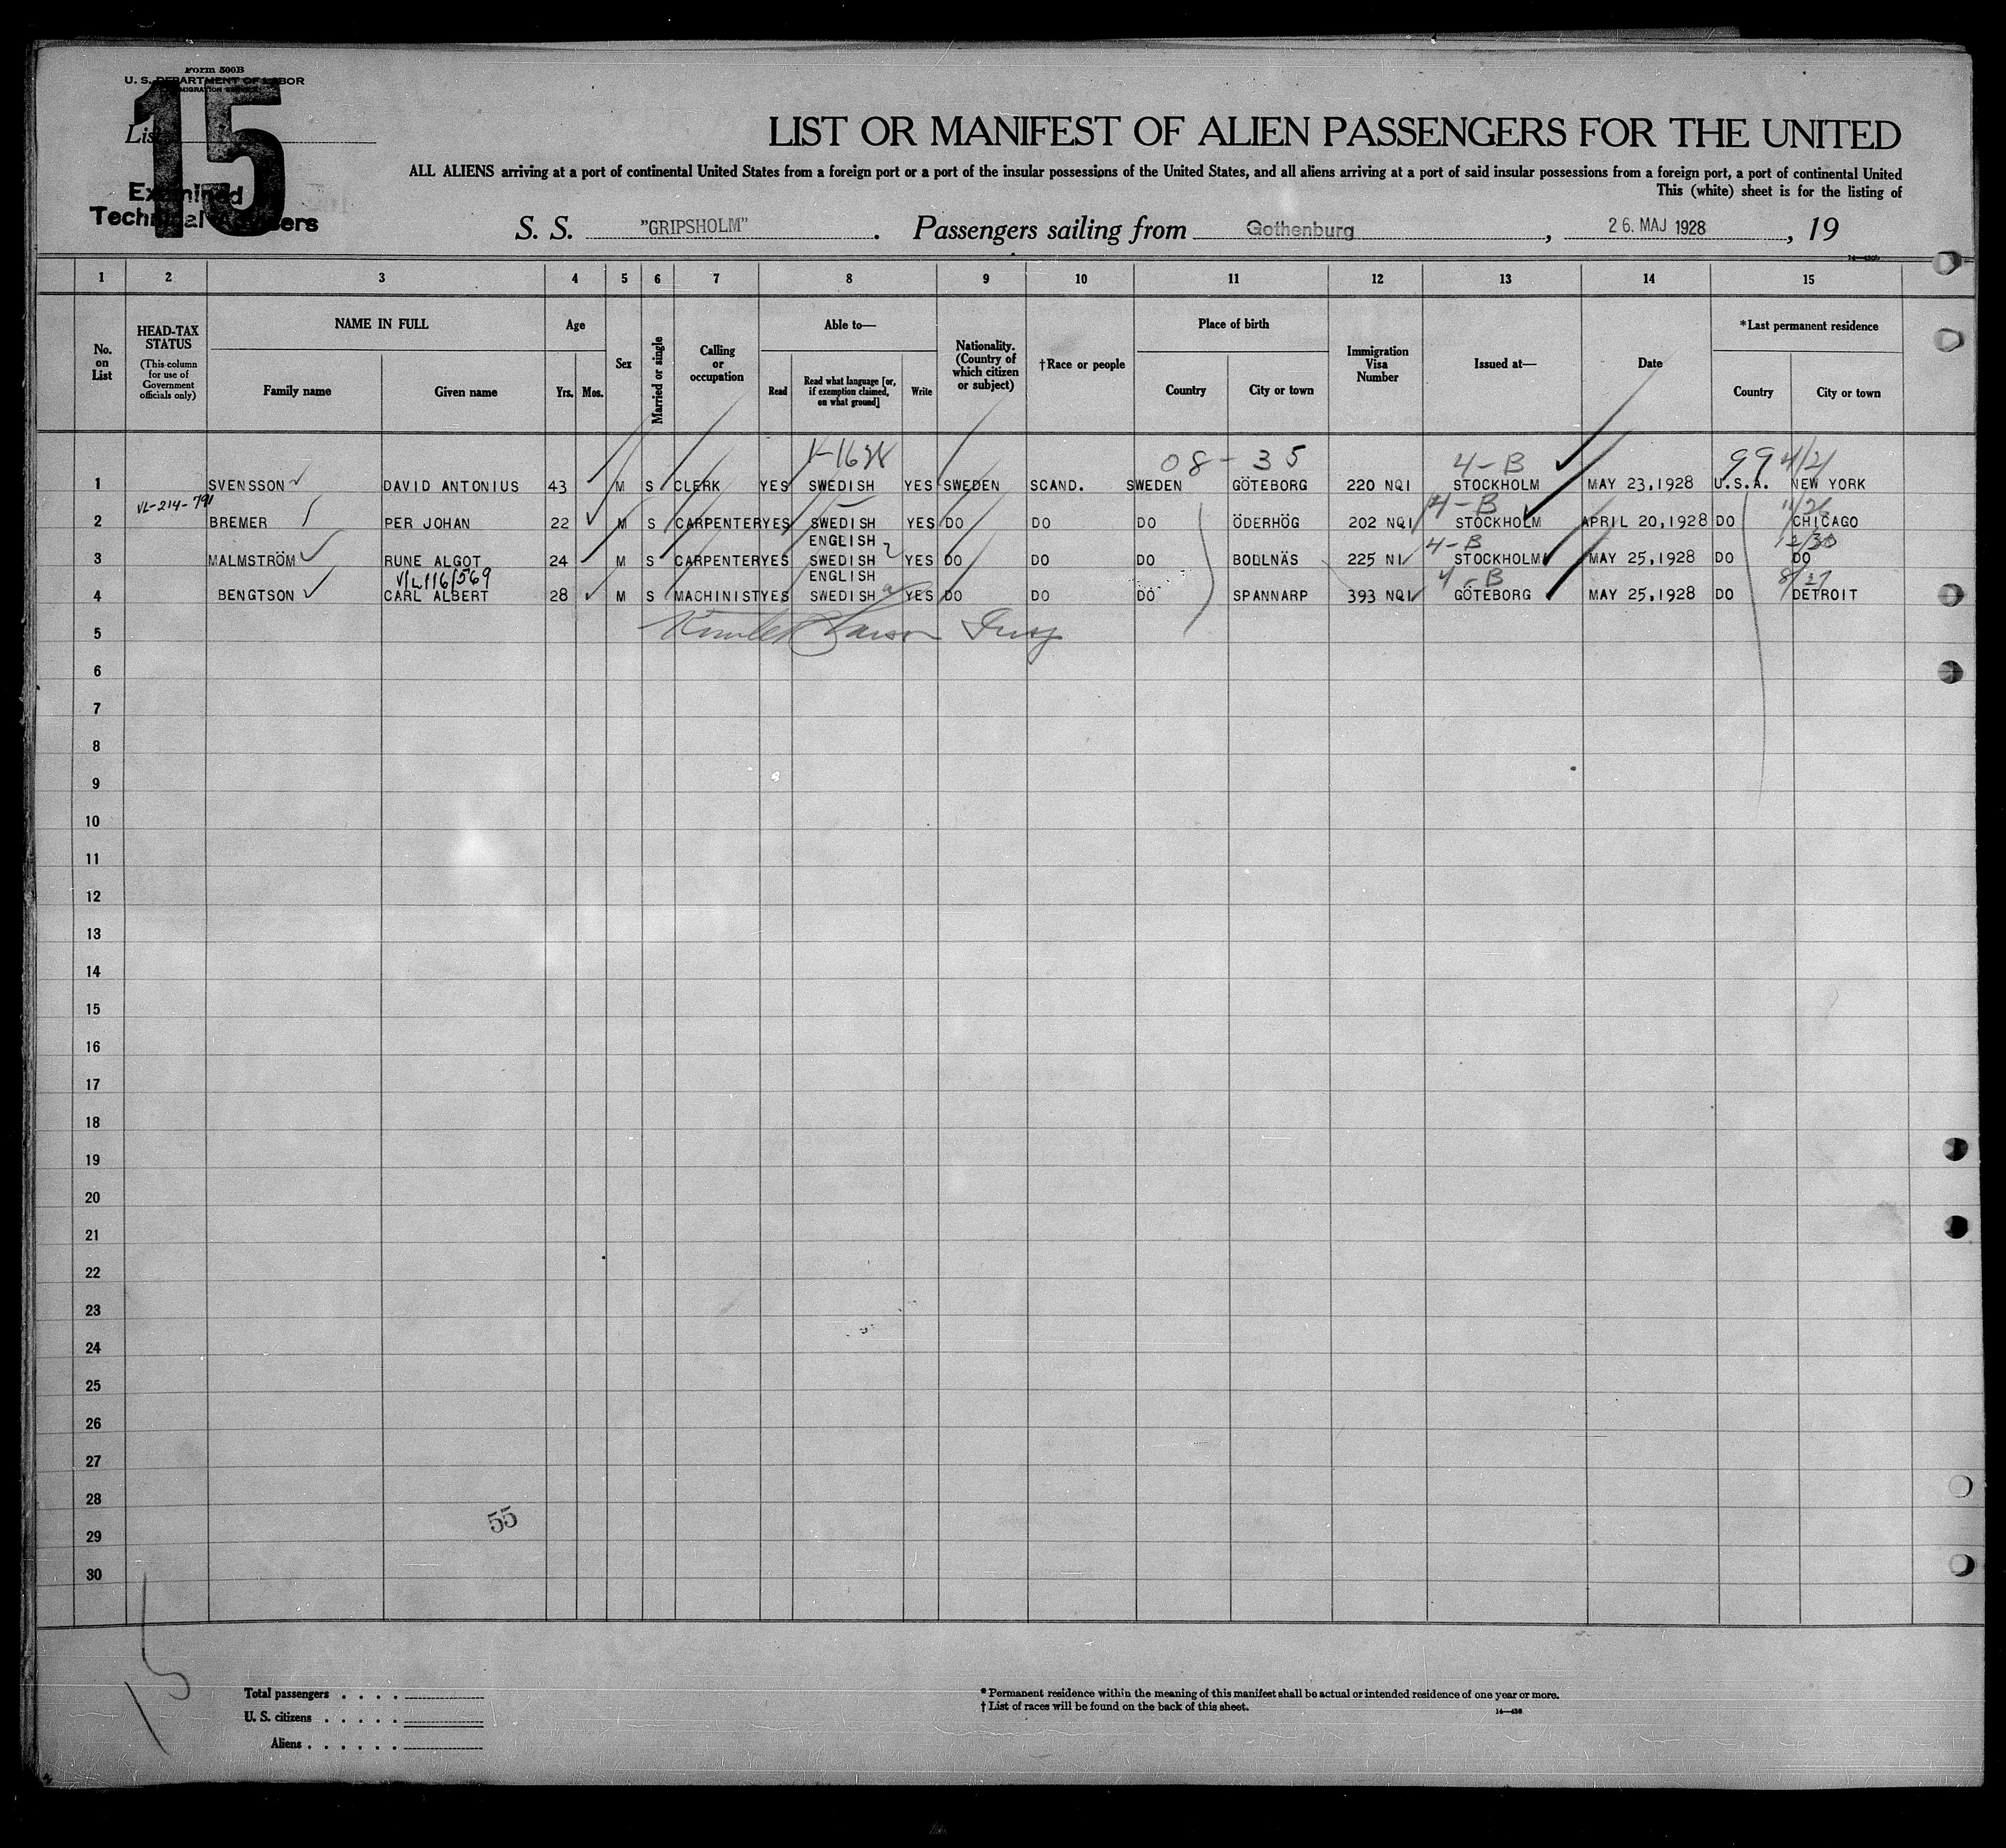 Form 500B
U. S. DEPARTMENT OF LABOR
IMMIGRATION SERVICE
List
15
Examined
Technical Advisers
LIST OR MANIFEST OF ALIEN PASSENGERS FOR THE UNITED
ALL ALIENS arriving at a port of continental United States from a foreign port or a port of the insular possessions of the United States, and all aliens arriving at a port of said insular possessions from a foreign port, a port of continental United
This (white) sheet is for the listing of
S. S. "GRIPSHOLM". Passengers sailing from Gothenburg, 26. MAJ 1928, 19
1 2 3 4 5 6 7 8 9 10 11 12 13 14 15
No. on List
HEAD-TAX STATUS
(This column for use of Government officials only)
NAME IN FULL
Family name
Given name
Age
Yrs. Mos.
Sex
Married or single
Calling or occupation
Able to—
Read
Read what language [or, if exemption claimed, on what ground]
Write
Nationality. (Country of which citizen or subject)
†Race or people
Place of birth
Country
City or town
Immigration Visa Number
Issued at—
Date
*Last permanent residence
Country
City or town
08-35 4-B 99 4/21
1 SVENSSON DAVID ANTONIUS 43 M S CLERK YES SWEDISH YES SWEDEN SCAND. SWEDEN GÖTEBORG 220 NQI STOCKHOLM MAY 23,1928 U.S.A. NEW YORK
VL-214-791
4-B 11/26
2 BREMER PER JOHAN 22 M S CARPENTER YES SWEDISH YES DO DO DO ÖDERHÖG 202 NQI STOCKHOLM APRIL 20,1928 DO CHICAGO
ENGLISH 4-B
3 MALMSTRÖM RUNE ALGOT 24 M S CARPENTER YES SWEDISH YES DO DO DO BOLLNÄS 225 NI STOCKHOLM MAY 25,1928 DO DO
V/L116/569 ENGLISH 4-B 8/27
4 BENGTSON CARL ALBERT 28 M S MACHINIST YES SWEDISH YES DO DO DO SPANNARP 393 NQI GÖTEBORG MAY 25,1928 DO DETROIT
5
6
7
8
9
10
11
12
13
14
15
16
17
18
19
20
21
22
23
24
25
26
27
28
55
29
30
Total passengers . . . .
U. S. citizens . . . . .
Aliens . . . . . .
* Permanent residence within the meaning of this manifest shall be actual or intended residence of one year or more.
† List of races will be found on the back of this sheet.